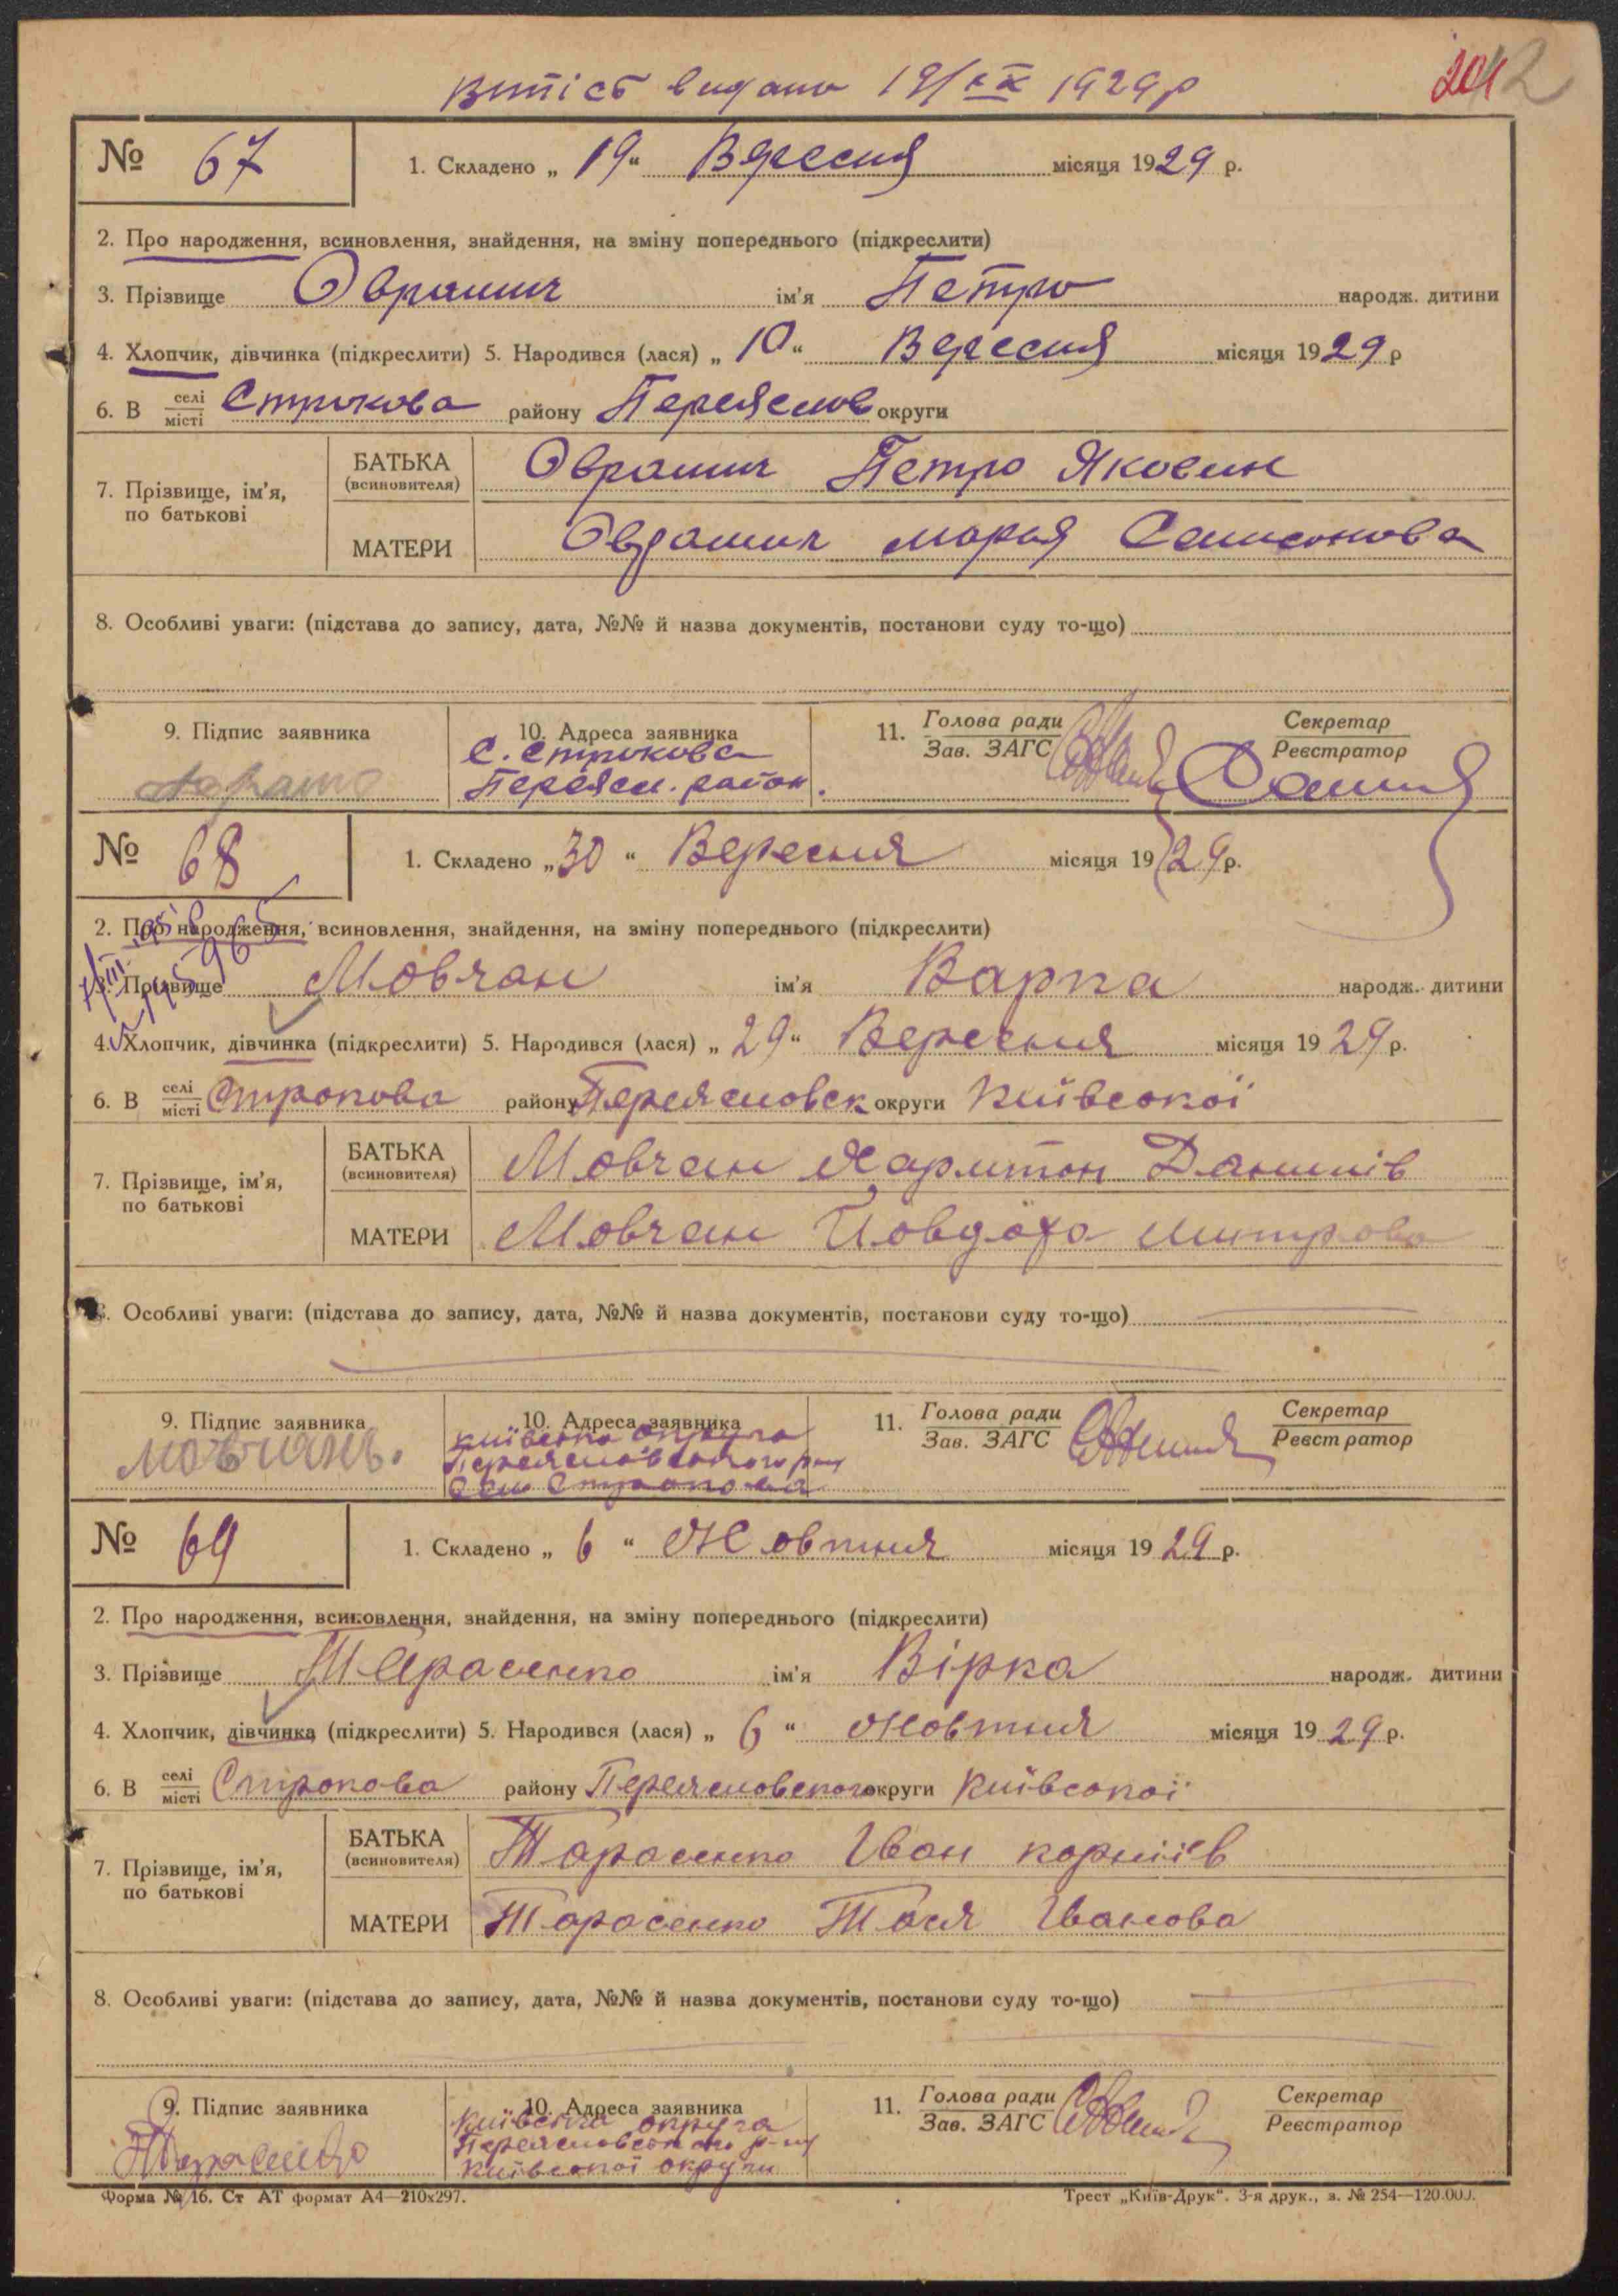 Витіст видано 19/IX 1929р
№ 67
1. Складено „ 19 “ Вересня місяця 1929 р.
2. Про народження, всиновлення, знайдення, на зміну попереднього (підкреслити)
3. Прізвище Аврамич ім'я Петро народж. дитини
4. Хлопчик, дівчинка (підкреслити) 5. Народився (лася) „ 10 “ Вересня місяця 1929 р
6. В селі місті Строкова району Переяслов округи
7. Прізвище, ім'я, по батькові
БАТЬКА (всиновителя) Аврамич Петро Яковин
МАТЕРИ Аврамич мария Самсонова
8. Особливі уваги: (підстава до запису, дата, №№ й назва документів, постанови суду то-що)
9. Підпис заявника
10. Адреса заявника
с. Строкова
Переясл. район.
11. Голова ради
Зав. ЗАГС
Секретар
Реєстратор
№ 68
1. Складено „ 30 “ Вересня місяця 1929 р.
2. Про народження, всиновлення, знайдення, на зміну попереднього (підкреслити)
3. Прізвище Мовчан ім'я Варка народж. дитини
4. Хлопчик, дівчинка (підкреслити) 5. Народився (лася) „ 29 “ Вересня місяця 1929 р.
6. В селі місті Строкова району Переясловск округи Київської
7. Прізвище, ім'я, по батькові
БАТЬКА (всиновителя) Мовчан Харитон Данилів
МАТЕРИ Мовчан Йовдоха митрова
8. Особливі уваги: (підстава до запису, дата, №№ й назва документів, постанови суду то-що)
9. Підпис заявника
Мовчань.
10. Адреса заявника
київська округа
Переясловського р-ну
село Строкова
11. Голова ради
Зав. ЗАГС
Секретар
Реєстратор
№ 69
1. Складено „ 6 “ Жовтня місяця 1929 р.
2. Про народження, всиновлення, знайдення, на зміну попереднього (підкреслити)
3. Прізвище Тарасенко ім'я Вірка народж. дитини
4. Хлопчик, дівчинка (підкреслити) 5. Народився (лася) „ 6 “ Жовтня місяця 1929 р.
6. В селі місті Строкова району Переясловского округи Київської
7. Прізвище, ім'я, по батькові
БАТЬКА (всиновителя) Тарасенко Іван корніїв
МАТЕРИ Тарасенко Тася Іванова
8. Особливі уваги: (підстава до запису, дата, №№ й назва документів, постанови суду то-що)
9. Підпис заявника
Тарасенко
10. Адреса заявника
Київська округа
Переясловського р-ну
Київської округи
11. Голова ради
Зав. ЗАГС
Секретар
Реєстратор
Форма № 16. Ст АТ формат А4—210х297.
Трест „Київ-Друк“. 3-я друк., з. № 254—120.000.